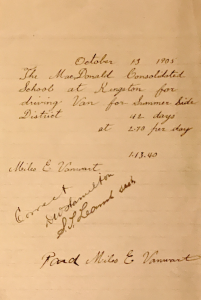 October 13 1905
The MacDonald Consolidated
Schools at Kingston for
driving Van for Summer Side
District 42 days
at 2.70 per day
113.40
Miles E. Vanwart
Correct
D W Hamilton
Paid Miles E Vanwart